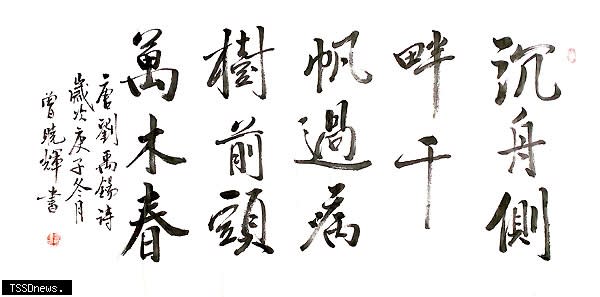 沉舟側
畔千
帆過病
樹前頭
萬木春
唐劉禹錫詩
歲次庚子冬月
曾曉輝書
TSSDnews.